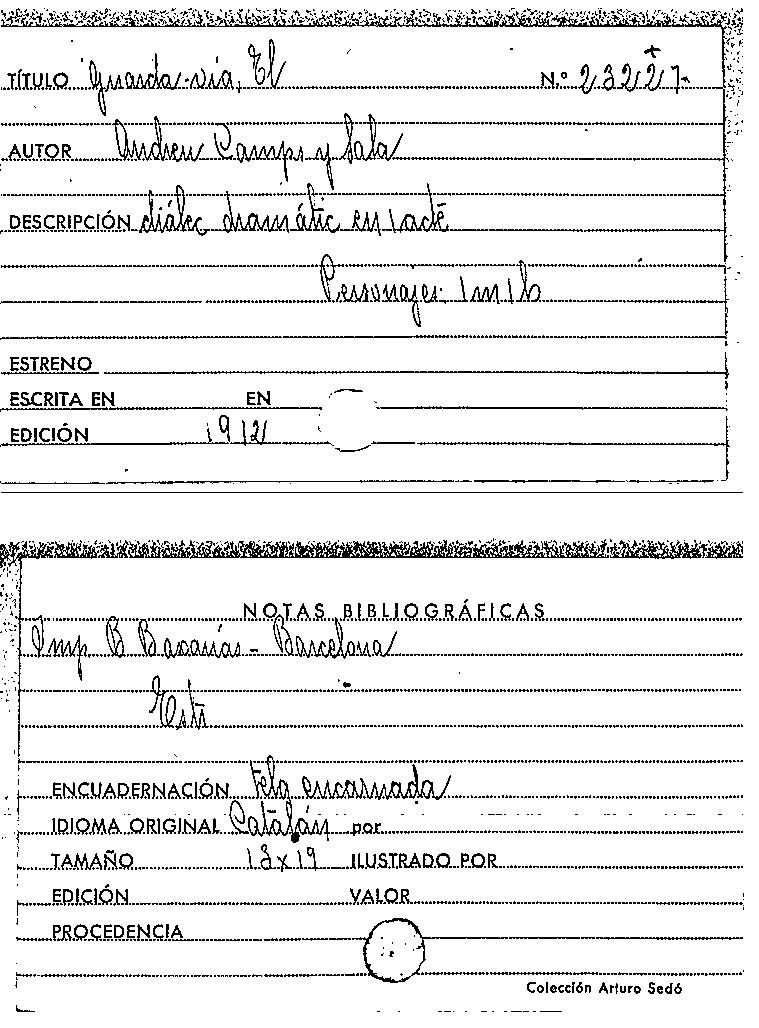 TÍTULO Guarda-vía, El N.º 23227
AUTOR Andreu Camps y Sala
DESCRIPCIÓN diálec dramátic en 1 acte
Personajes: 1 m 1 h
ESTRENO
ESCRITA EN EN
EDICIÓN 1912
NOTAS BIBLIOGRÁFICAS
Imp. B Baxarías - Barcelona
ENCUADERNACIÓN tela encarnada
IDIOMA ORIGINAL Catalán por
TAMAÑO 13x19 ILUSTRADO POR
EDICIÓN VALOR
PROCEDENCIA
Colección Arturo Sedó